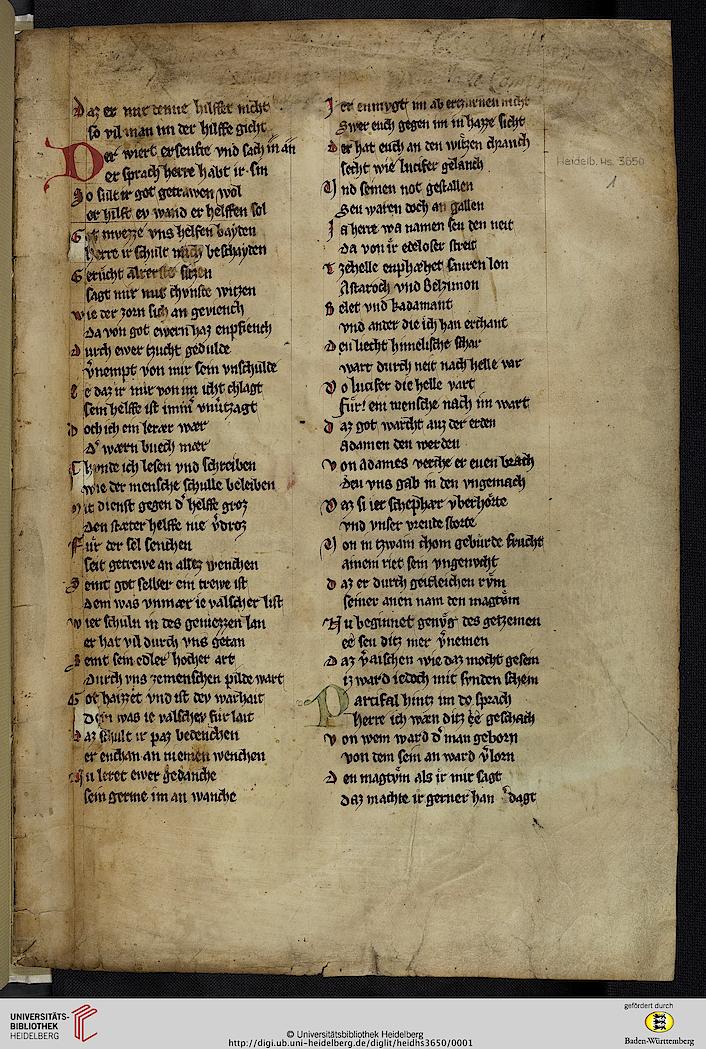 Daz er mir denne hilffet nicht
so vil man im der hilffe gicht
Der wiert erseufte vnd sach in an
Der sprach herre habt ir sin
So sült ir got getrawen wol
er hilft ev wand er helffen sol
Got mvezze vns helfen bayden
herre ir schult mich beschayden
Gerücht alrerste sitzen
sagt mir mit chvnste witzen
wie der zorn sich an geviench
da von got ewern haz enpfiench
Durch ewer tzucht gedulde
v̓nempt von mir sein vnschulde
E daz ir mir von im icht chlagt
sein helffe ist imm̄ vnūtzagt
Doch ich ein leraer waer
D̓ waern buech maer
Chvnde ich lesen vnd schreiben
wie der mensche schulle beleiben
Mit dienst gegen d̓ helffe groz
den staeter helffe nie v̓droz
Für der sel senchen
seit getrewe an allez wenchen
Seint got selber ein trewe ist
dem was vnmaer ie valscher list
wier schuln in des geniezzen lan
er hat vil durch vns getan
Seint sein edler hocher art
durch vns ze menschen pilde wart
Got haizzet vnd ist dev warhait
dem was ie valschev für lait
Daz schult ir paz bedenchen
er enchan an niemen wenchen
Nu leret ewer gedanche
sein germe im an wanche
Ir enmvgt im ab erzurnen nicht
Swer euch gegen im in hazze sicht
Der hat euch an den witzen chranch
secht wie lucifer gelanch
Vnd seinen not gestallen
Seu waren doch an gallen
Ja herre wa namen seu den neit
da von ir edeloser streit
Tzehelle enphaehet sauren lon
Astaroch vnd Belzimon
Belet vnd kadamant
vnd ander die ich han erchant
Den liecht himelische schar
wart durch neit nach helle var
Do lucifer die helle vart
Für! ein mensche nach im wart
daz got warcht auz der erden
adamen den werden
Von adames verche er euen brach
deu vns gab in den vngemach
Daz si ier schephaer vberhorte
vnd vnser vreude storte
Von in tzwain chom gebürde frucht
ainem riet sein vngenvcht
daz er durch geitleichen rvm
seiner anen nam den magtvm
Nu beginnet genvg des getzemen
ee seu ditz mer v̓nemen
Daz v̓aischen wie daz mocht gesein
iz ward iedoch mit synden schein
Partifal hintz im do sprach
herre ich waen ditz ee geschach
Von wem ward d̓ man geborn
von dem sein an ward v̓lorn
Den magtvm als ir mir sagt
daz machte ir gerner han v̓dagt
Heidelb. Hs. 3650
1
UNIVERSITÄTS-
BIBLIOTHEK
HEIDELBERG
© Universitätsbibliothek Heidelberg
http://digi.ub.uni-heidelberg.de/diglit/heidhs3650/0001
gefördert durch
Baden-Württemberg